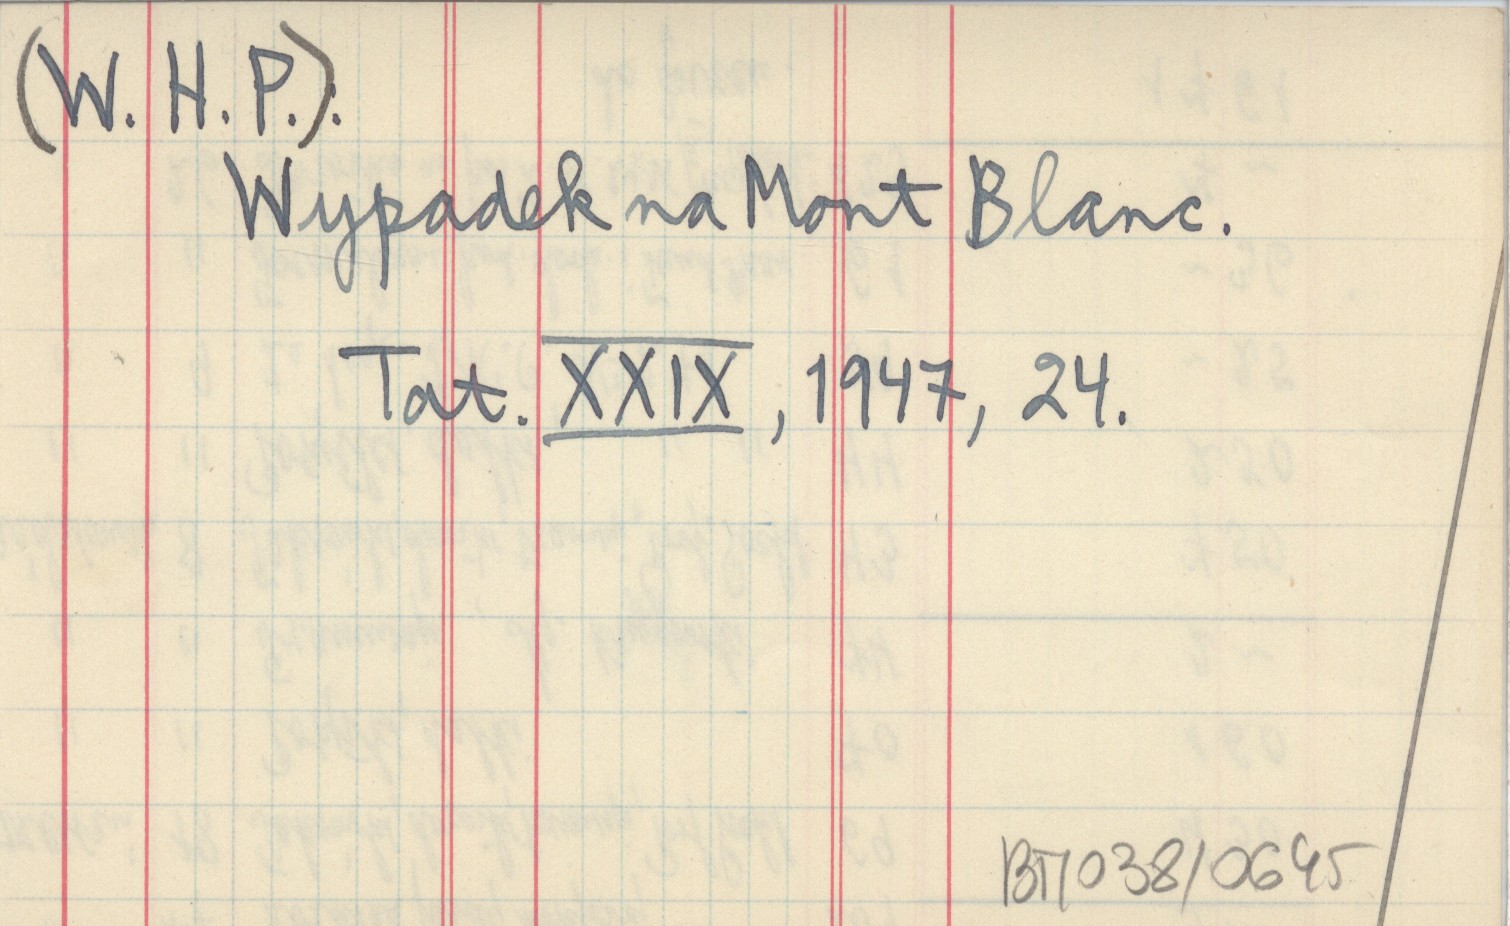 (W. H. P.).
Wypadek na Mont Blanc.
Tat. XXIX, 1947, 24.
BT/038/0695